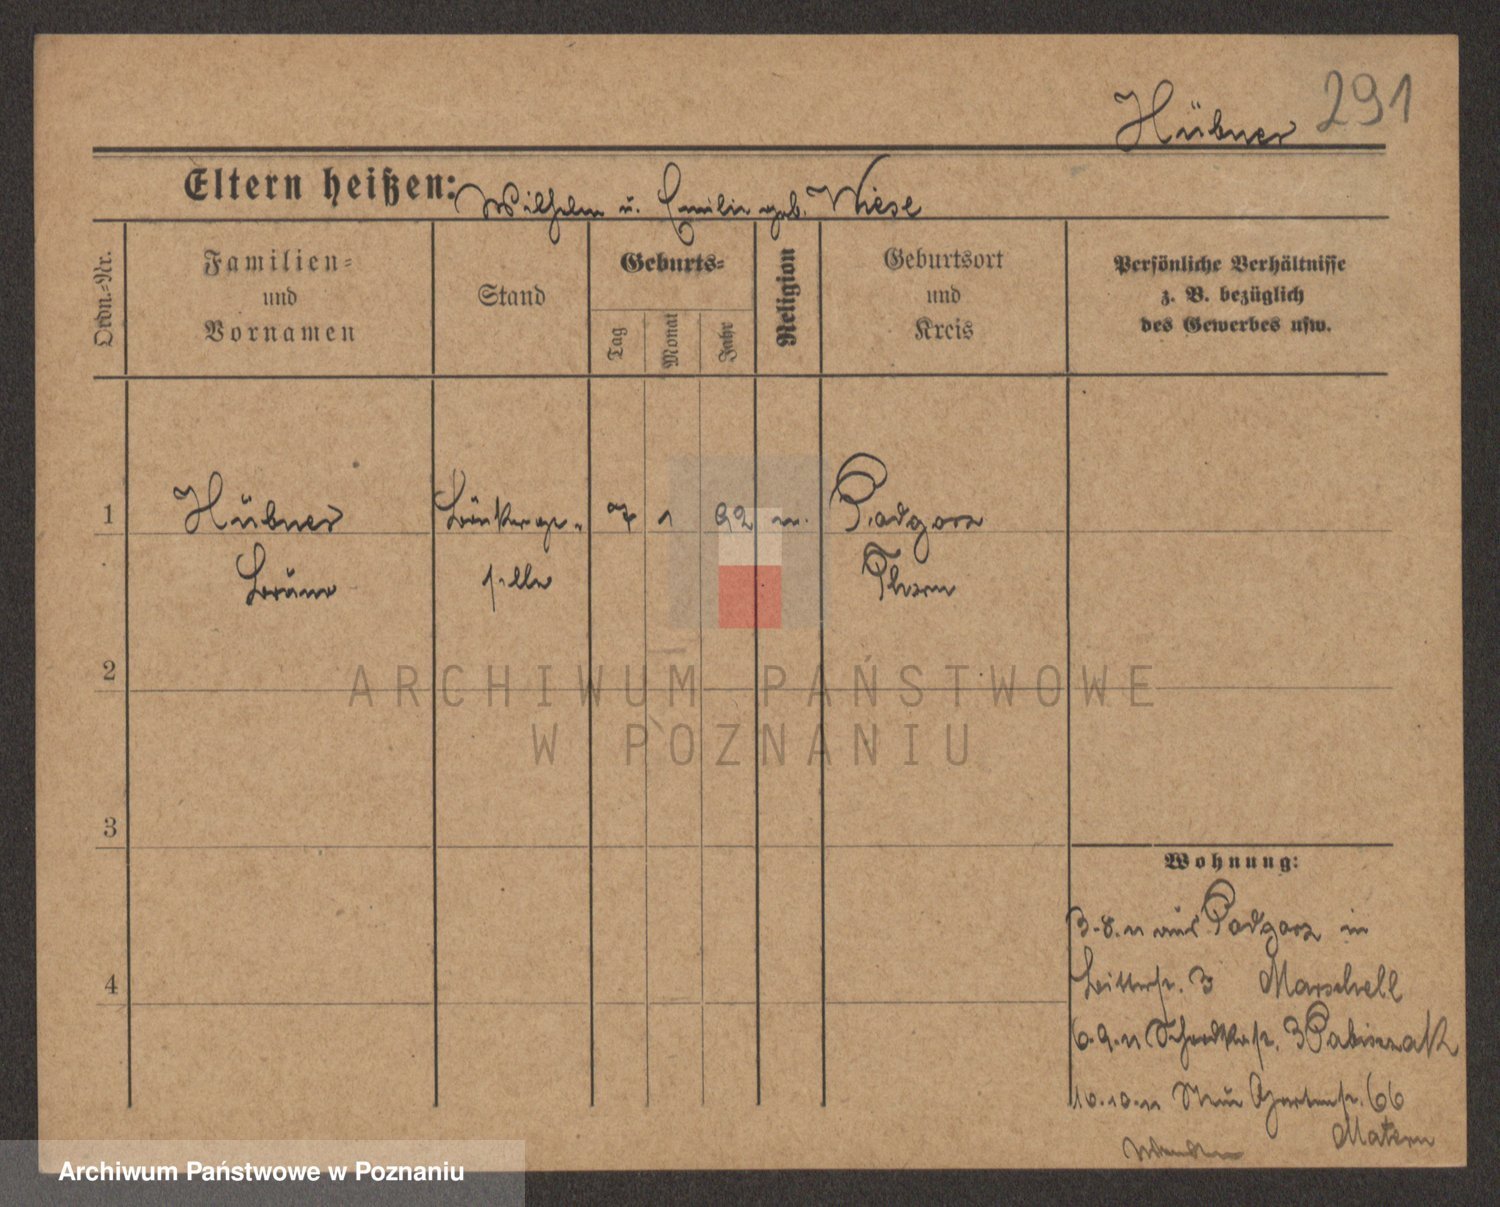 Hübner 291
Eltern heißen: Wilhelm u. Emilie geb. Wiese
Ordn.-Nr.
Familien-
und
Vornamen
Stand
Geburts-
Tag
Monat
Jahr
Religion
Geburtsort
und
Kreis
Persönliche Verhältnisse
z. B. bezüglich
des Gewerbes usw.
1 Hübner 7 1 92 Podgorz
selle Thorn
2
ARCHIWUM PAŃSTWOWE
W POZNANIU
3
4
Wohnung:
3.8.11 aus Podgorz in
Ritterstr. 3 Marschell
6.9.11 3 Pabiszak
10.10.11 Neue Gartenstr. 66
Matern
Wenden
Archiwum Państwowe w Poznaniu